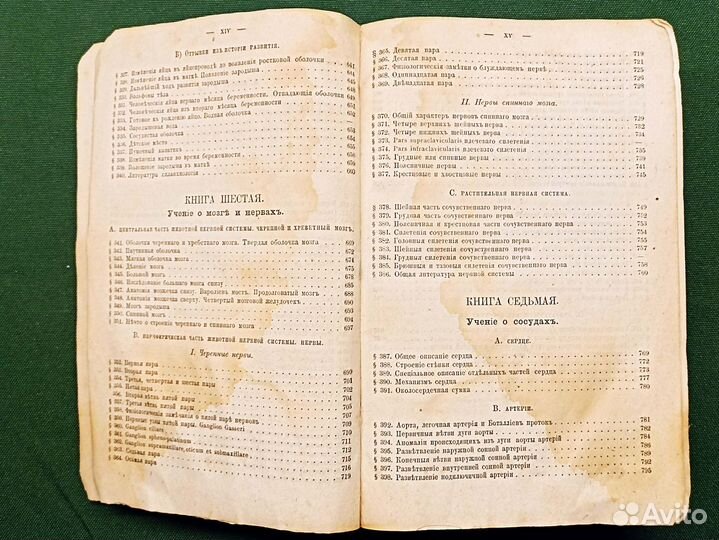 — XIV —
B) Отрывки изъ исторіи развитія.
§ 327. Измѣненія яйца въ яйцепроводѣ до появленія ростковой оболочки 641
§ 328. Измѣненія яйца въ маткѣ. Появленіе зародыша
§ 329. Дальнѣйшій ходъ развитія зародыша
§ 330. Вольфовы тѣла
§ 331. Человѣческія яйца перваго мѣсяца беременности. Отпадающая оболочки
§ 332. Человѣческія яйца втораго мѣсяца беременности
§ 333. Готовое къ рожденію яйцо. Водная оболочка
§ 334. Зародышевая вода
§ 335. Сосудистая оболочка
§ 336. Дѣтское мѣсто
§ 337. Пупочный канатикъ
§ 338. Измѣненія матки во время беременности
§ 339. Положеніе зародыша въ маткѣ
§ 340. Литература спланхнологіи 660
КНИГА ШЕСТАЯ.
Ученіе о мозгѣ и нервахъ.
А. Центральная часть животной нервной системы. Черепной и хребетный мозгъ.
§ 341. Оболочки черепнаго и хребетнаго мозга. Твердая оболочка мозга 669
§ 342. Паутинная оболочка 672
§ 343. Мягкая оболочка мозга 674
§ 344. Дѣленіе мозга 675
§ 345. Большой мозгъ 675
§ 346. Изслѣдованіе большаго мозга снизу
§ 347. Анатомія мозжечка снизу. Вароліевъ мостъ. Продолговатый мозгъ
§ 348. Анатомія мозжечка сверху. Четвертый мозговой желудочекъ 688
§ 349. Мозгъ зародыша
§ 350. Спинной мозгъ
§ 351. Нѣчто о строеніи черепнаго и спиннаго мозга 697
В. Периферическая часть животной нервной системы. Нервы.
I. Черепные нервы.
§ 352. Первая пара
§ 353. Вторая пара 701
§ 354. Третья, четвертая и шестая пары
§ 355. Пятая пара
§ 356. Вторая вѣтвь пятой пары
§ 357. Третья вѣтвь пятой пары
§ 358. Физіологическія замѣчанія о пятой парѣ нервовъ
§ 359. Нервные узлы пятой пары. Ganglion Gasseri
§ 360. Ganglion ciliare
§ 361. Ganglion spheno-palatinum
§ 362. Ganglion supramaxillare, oticum et submaxillare
§ 363. Седьмая пара
§ 364. Осьмая пара 719
— XV —
§ 365. Девятая пара 719
§ 366. Десятая пара
§ 367. Физіологическія замѣтки о блуждающемъ нервѣ 725
§ 368. Одиннадцатая пара
§ 369. Двѣнадцатая пара
II. Нервы спиннаго мозга.
§ 370. Общій характеръ нервовъ спиннаго мозга 729
§ 371. Четыре верхнихъ шейныхъ нерва 732
§ 372. Четыре нижнихъ шейныхъ нерва 734
§ 373. Pars supraclavicularis плечеваго сплетенія —
§ 374. Pars infraclavicularis плечеваго сплетенія 736
§ 375. Грудные или спинные нервы 739
§ 376. Поясничные нервы 741
§ 377. Крестцовые и хвостцовые нервы 745
С. Растительная нервная система.
§ 378. Шейная часть сочувственнаго нерва 749
§ 379. Грудная часть сочувственнаго нерва 752
§ 380. Поясничная и крестцовая части сочувственнаго нерва
§ 381. Сплетенія сочувственнаго нерва
§ 382. Головныя сплетенія сочувственнаго нерва 755
§ 383. Шейныя сплетенія сочувственнаго нерва 757
§ 384. Грудныя сплетенія сочувственнаго нерва
§ 385. Брюшныя и тазовыя сплетенія сочувственнаго нерва
§ 386. Общая литература нервной системы 760
КНИГА СЕДЬМАЯ.
Ученіе о сосудахъ.
А. Сердце.
§ 387. Общее описаніе сердца 769
§ 388. Строеніе стѣнки сердца 772
§ 389. Спеціальное описаніе отдѣльныхъ частей сердца 773
§ 390. Механизмъ сердца 777
§ 391. Околосердечная сумка 780
В. Артеріи.
§ 392. Аорта, легочная артерія и Боталліевъ протокъ 781
§ 393. Первичныя вѣтви дуги аорты 784
§ 394. Аномаліи происходящихъ изъ дуги аорты артерій
§ 395. Развѣтвленіе наружной сонной артеріи 787
§ 396. Конечныя вѣтви наружной сонной артеріи 790
§ 397. Развѣтвленіе внутренней сонной артеріи 792
§ 398. Развѣтвленіе подключичной артеріи 795
Avito